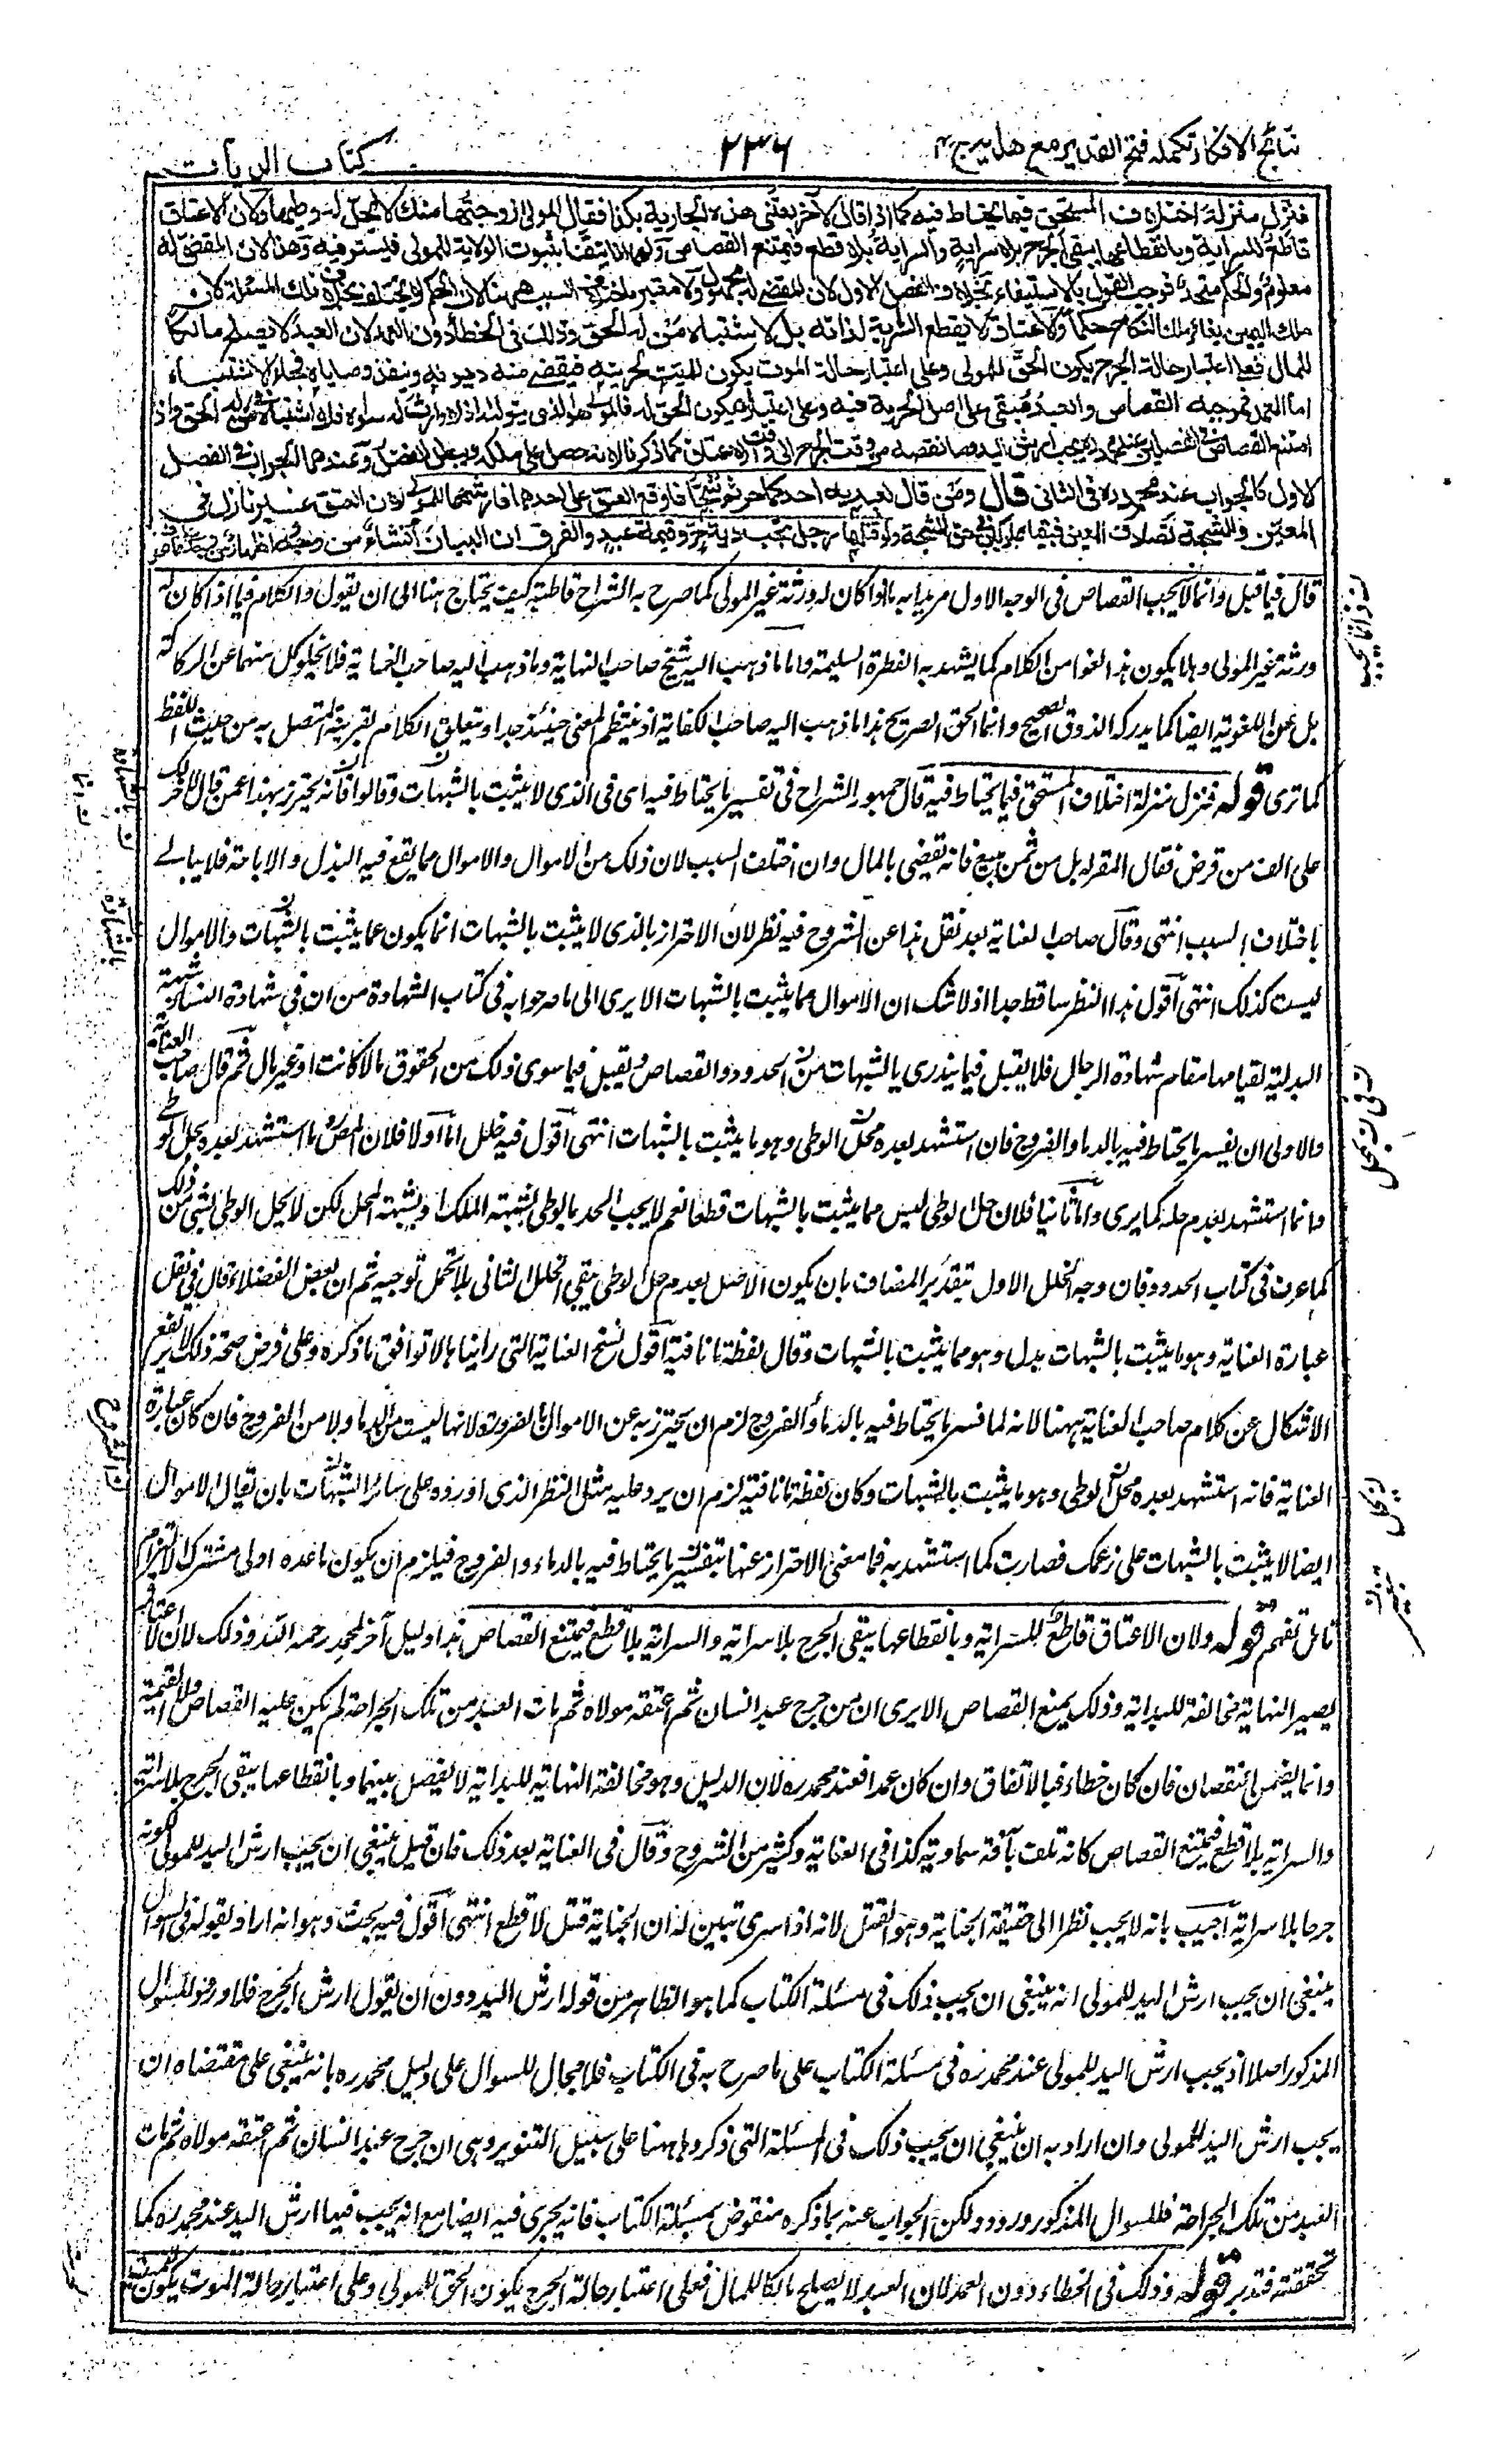 نتائج الافكار تكمله فتح القدير مع هدايه ج ٤
٢٣٦
كتاب الديات
فنزل منزلة اختلاف المستحق فيما يحتاط فيه كما اذا قال لآخر بعتنى هذه الجارية بكذا فقال المولى زوجتها منك لا يحل له وطيها ولان الاعتاق
قاطع للسراية وبانقطاعها يبقى الجرح بلا سراية والسراية بلا قطع فيمتنع القصاص ولهما انا تيقنا بثبوت الولاية للمولى فيستوفيه وهذا لان المقضى له
معلوم والحكم متحد فوجب القول بالاستيفاء بخلاف الفصل الاول لان المقضى له مجهول ولا معتبر باختلاف السبب ههنا لان الحكم لا يختلف بخلاف تلك المسئلة لان
ملك اليمين يغاير ملك النكاح حكما والاعتاق لا يقطع السراية لذاته بل لاشتباه من له الحق وذلك فى الخطأ دون العمد لان العبد لا يصلح مالكا
للمال فعلى اعتبار حالة الجرح يكون الحق للمولى وعلى اعتبار حالة الموت يكون للميت لحريته فيقضى منه ديونه وينفذ وصاياه فجاء الاشتباه
اما العمد فموجبه القصاص والعبد مبقى على اصل الحرية فيه وعلى اعتبار ان يكون الحق له فالمولى هو الذى يتولاه اذ لا وارث له سواه فلا اشتباه فى من له الحق واذا
امتنع القصاص فى الفصلين عند محمد ره يجب ارش اليد وما نقصه من وقت الجرح الى وقت الاعتاق كما ذكرنا لانه حصل على ملكه ويبطل الفضل وعندهما الجواب فى الفصل
الاول كالجواب عند محمد ره فى الثانى قال ومن قال لعبديه احدكما حر ثم شجا فاوقع العتق على احدهما فارشهما للمولى لان العتق غير نازل فى
المعين والشجة تصادف المعين فبقيا مملوكين فى حق الشجة ولو قتلهما رجل تجب دية حر وقيمة عبد والفرق ان البيان انشاء من وجه واظهار من وجه
قال فيما قبل وانما لا يجب القصاص فى الوجه الاول مريدا به ما اذا كان له ورثة غير المولى كما صرح به الشراح قاطبة كيف يحتاج هنا الى ان يقول والكلام فيما اذا كان له
ورثة غير المولى وهلا يكون هذا لغوا من الكلام كما يشهد به الفطرة السليمة واما ما ذهب اليه شيخ صاحب النهاية وما ذهب اليه صاحب العناية فلا يخلو كل منهما عن الركاكة
بل عن اللغوية ايضا كما يدركه الذوق الصحيح وانما الحق الصريح هذا ما ذهب اليه صاحب الكفاية اذ ينتظم المعنى حينئذ جدا ويتعلق الكلام بقرينة المتصل به من حيث اللفظ
كما ترى قوله فنزل منزلة اختلاف المستحق فيما يحتاط فيه قال جمهور الشراح فى تفسير ما يحتاط فيه اى فى الذى لا يثبت بالشبهات وقالوا فانه يحترز بهذا عمن قال لآخر لك
على الف من قرض فقال المقر له بل من ثمن مبيع فانه يقضى بالمال وان اختلف السبب لان ذلك من الاموال والاموال مما يقع فيه البذل والاباحة فلا يبالى
باختلاف السبب انتهى وقال صاحب العناية بعد نقل هذا عن الشروح فيه نظر لان الاحتراز بالذى لا يثبت بالشبهات انما يكون عما يثبت بالشبهات والاموال
ليست كذلك انتهى اقول هذا النظر ساقط جدا اذ لا شك ان الاموال مما يثبت بالشبهات الا يرى الى ما صرحوا به فى كتاب الشهادة من ان فى شهادة النساء شبهة
البدلية لقيامها مقام شهادة الرجال فلا يقبل فيما يندرى بالشبهات من الحدود والقصاص ويقبل فيما سوى ذلك من الحقوق مالا كانت او غير مال ثم قال صاحب العناية
والاولى ان يفسر ما يحتاط فيه بالدماء والفروج فان استشهد بعده بحل الوطى وهو ما يثبت بالشبهات انتهى اقول فيه خلل اما اولا فلان المص رو ما استشهد بعده بحل الوطى
وانما استشهد بعدم حله كما يرى واما ثانيا فلان حل الوطى ليس مما يثبت بالشبهات قطعا نعم لا يجب الحد بالوطى بشبهة الملك او بشبهة المحل لكن لا يحل الوطى بشئ من ذلك
كما عرف فى كتاب الحدود فان وجه الخلل الاول بتقدير المضاف بان يكون الاصل بعدم حل الوطى يبقى الخلل الثانى بلا تحمل توجيه ثم ان بعض الفضلاء قال فى نقل
عبارة العناية وهو ما يثبت بالشبهات بدل وهو مما يثبت بالشبهات وقال لفظة ما نافية اقول نسخ العناية التى رايناها لا توافق ما ذكره وعلى فرض صحة ذلك لا يرتفع
الاشكال عن كلام صاحب العناية ههنا لانه لما فسر ما يحتاط فيه بالدماء والفروج لزم ان يحترز به عن الاموال بالضرورة لانها ليست من الدماء ولا من الفروج فان كان عبارة
العناية فانه استشهد بعده بحل الوطى وهو ما يثبت بالشبهات وكان لفظة ما نافية لزم ان يرد عليه مثل النظر الذى اورده على سائر الشبهات بان يقال الاموال
ايضا لا يثبت بالشبهات على زعمك فصارت كما استشهد به فما معنى الاحتراز عنها بتفسير ما يحتاط فيه بالدماء والفروج فيلزم ان يكون ما عده اولى مشترك الالتزام
تامل تفهم قوله ولان الاعتاق قاطع للسراية وبانقطاعها يبقى الجرح بلا سراية والسراية بلا قطع فيمتنع القصاص هذا دليل آخر لمحمد رحمه الله وذلك لان الاعتاق
يصير النهاية مخالفة للبداية وذلك يمنع القصاص الا يرى ان من جرح عبد انسان ثم اعتقه مولاه ثم مات العبد من تلك الجراحة لم يكن عليه القصاص ولا القيمة
وانما يضمن النقصان فان كان خطاء فبالاتفاق وان كان عمدا فعند محمد ره لان الدليل وهو مخالفة النهاية للبداية لا يفصل بينهما وبانقطاعها يبقى الجرح بلا سراية
والسراية بلا قطع فيمتنع القصاص كانه تلف بآفة سماوية كذا فى العناية وكثير من الشروح وقال فى العناية بعد ذلك فان قيل ينبغى ان يجب ارش اليد للمولى لكونه
جرحا بلا سراية اجيب بانه لا يجب نظرا الى حقيقة الجناية وهو القتل لانه اذا سرى تبين له ان الجناية قتل لا قطع انتهى اقول فيه بحث وهو انه اراد بقوله فى السؤال
ينبغى ان يجب ارش اليد للمولى انه ينبغى ان يجب ذلك فى مسئلة الكتاب كما هو الظاهر من قوله ارش اليد دون ان يقول ارش الجرح فلا ورود للسؤال
المذكور اصلا اذ يجب ارش اليد للمولى عند محمد ره فى مسئلة الكتاب على ما صرح به فى الكتاب فلا مجال للسوال على دليل محمد ره بانه ينبغى على مقتضاه ان
يجب ارش اليد للمولى وان اراد به ان ينبغى ان يجب ذلك فى المسئلة التى ذكروها ههنا على سبيل التنوير وهى ان جرح عبد انسان ثم اعتقه مولاه ثم مات
العبد من تلك الجراحة فللسوال المذكور ورود ولكن الجواب عنه بما ذكره منقوض بمسئلة الكتاب فانه يجرى فيه ايضا مع انه يجب فيها ارش اليد عند محمد ره كما
تحققته فتدبر قوله وذلك فى الخطاء دون العمد لان العبد لا يصلح مالكا للمال فعلى اعتبار حالة الجرح يكون الحق للمولى وعلى اعتبار حالة الموت يكون للميت